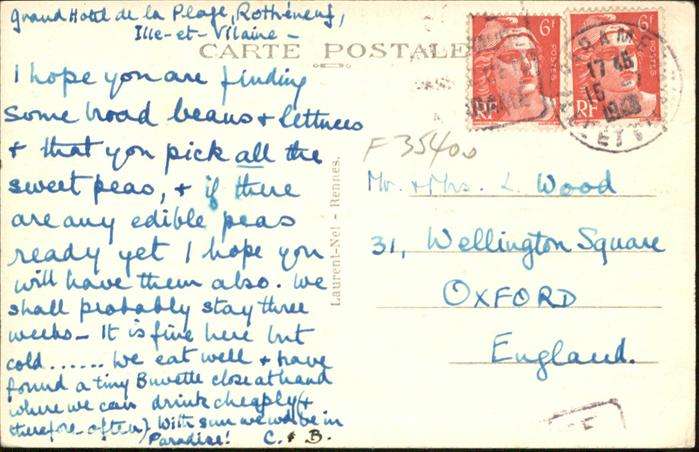 Grand Hotel de la Plage, Rothéneuf,
Ille-et-Vilaine -
CARTE POSTALE
I hope you are finding
some broad beans & lettuces
& that you pick all the
sweet peas, & if there
are any edible peas
ready yet I hope you
will have them also. We
shall probably stay three
weeks - It is fine here but
cold...... We eat well & have
found a tiny Buvette close at hand
where we can drink cheaply (&
therefore often). With sun we wd be in
Paradise! C. & B.
Laurent-Nel - Rennes.
6F
POSTES
RF
6F
POSTES
RF
17 45
15
F 35400
Mr. & Mrs. L. Wood
31, Wellington Square
OXFORD
England.